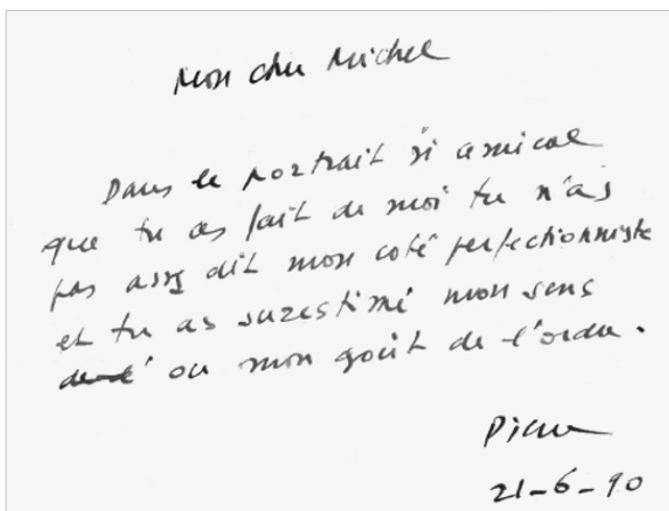 Mon cher Michel
Dans le portrait si amical
que tu as fait de moi tu n'as
pas assez dit mon coté perfectionniste
et tu as surestimé mon sens
ou mon goût de l'ordre.
Pierre
21-6-90